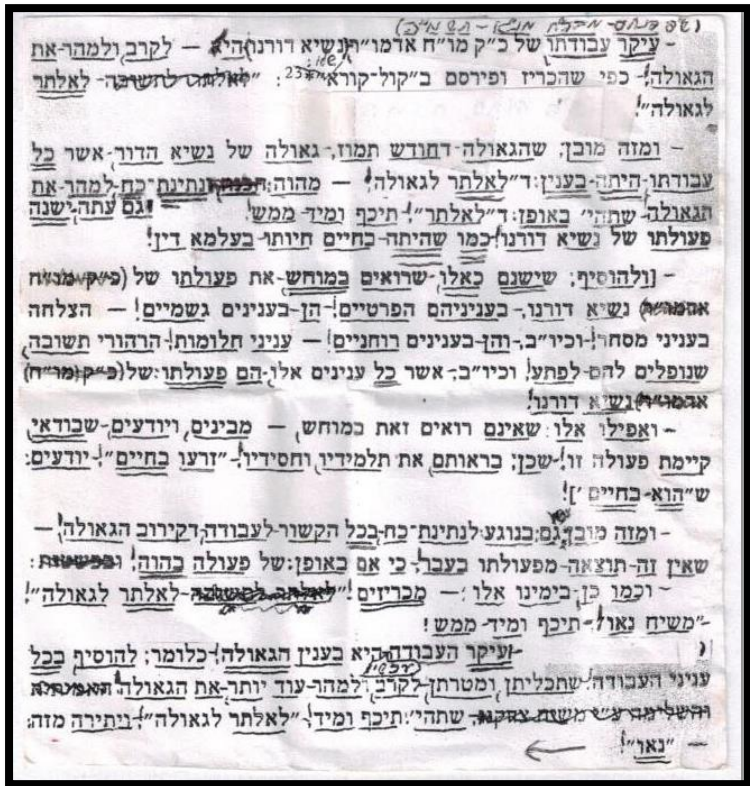 (ש"פ פנחס - מבה"ח מנ"א - תשמ"ה)
- עיקר עבודתו של כ"ק מו"ח אדמו"ר (נשיא דורנו) היא — לקרב ולמהר את
הגאולה! כפי שהכריז ופירסם ב"קול-קורא" שלו 23*: "לאלתר לתשובה לאלתר
לגאולה"!
- ומזה מובן, שהגאולה דחודש תמוז, גאולה של נשיא הדור, אשר כל
עבודתו היתה בענין ד"לאלתר לגאולה"! — מהוה הכנה ונתינת כח למהר את
הגאולה, שתהי' באופן ד"לאלתר"! תיכף ומיד ממש! גם עתה ישנה
פעולתו של נשיא דורנו! כמו שהיתה בחיים חיותו בעלמא דין!
- [ולהוסיף, שישנם כאלו שרואים במוחש את פעולתו של (כ"ק מו"ח
אדמו"ר) נשיא דורנו, בעניניהם הפרטיים! הן בענינים גשמיים! — הצלחה
בעניני מסחר! וכיו"ב, והן בענינים רוחניים! — עניני חלומות! הרהורי תשובה,
שנופלים להם לפתע! וכיו"ב, אשר כל ענינים אלו הם פעולתו של (כ"ק (מו"ח)
אדמו"ר) נשיא דורנו!
- ואפילו אלו שאינם רואים זאת במוחש, — מבינים, ויודעים, שבודאי
קיימת פעולה זו! שכן, בראותם את תלמידיו וחסידיו! "זרעו בחיים"! יודעים
ש"הוא בחיים"]!
- ומזה מובן גם בנוגע לנתינת כח בכל הקשור לעבודה דקירוב הגאולה! —
שאין זה תוצאה מפעולתו בעבר, כי אם באופן של פעולה בהוה! ובפשטות:
- וכמו כן בימינו אלו: — מכריזים! "לאלתר לתשובה לאלתר לגאולה"!
- "משיח נאו"! תיכף ומיד ממש!
- ועיקר העבודה היא בענין הגאולה! כלומר, להוסיף בכל
עניני העבודה, שתכליתן ומטרתן עכשיו לקרב ולמהר עוד יותר את הגאולה! האמיתית
והשלימה ע"י משיח צדקנו, שתהי' תיכף ומיד! "לאלתר לגאולה"! וביתירה מזה:
— "נאו"!